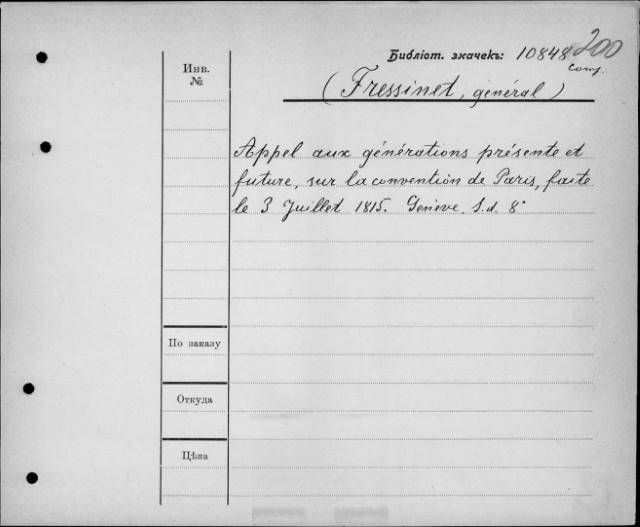 Библіот. значекъ: 10848 200
Инв.
№
(Fressinet, général)
Appel aux générations présente et
future, sur la convention de Paris, faite
le 3 Juillet 1815. Genève. S. d. 8°
По заказу
Откуда
Цѣна